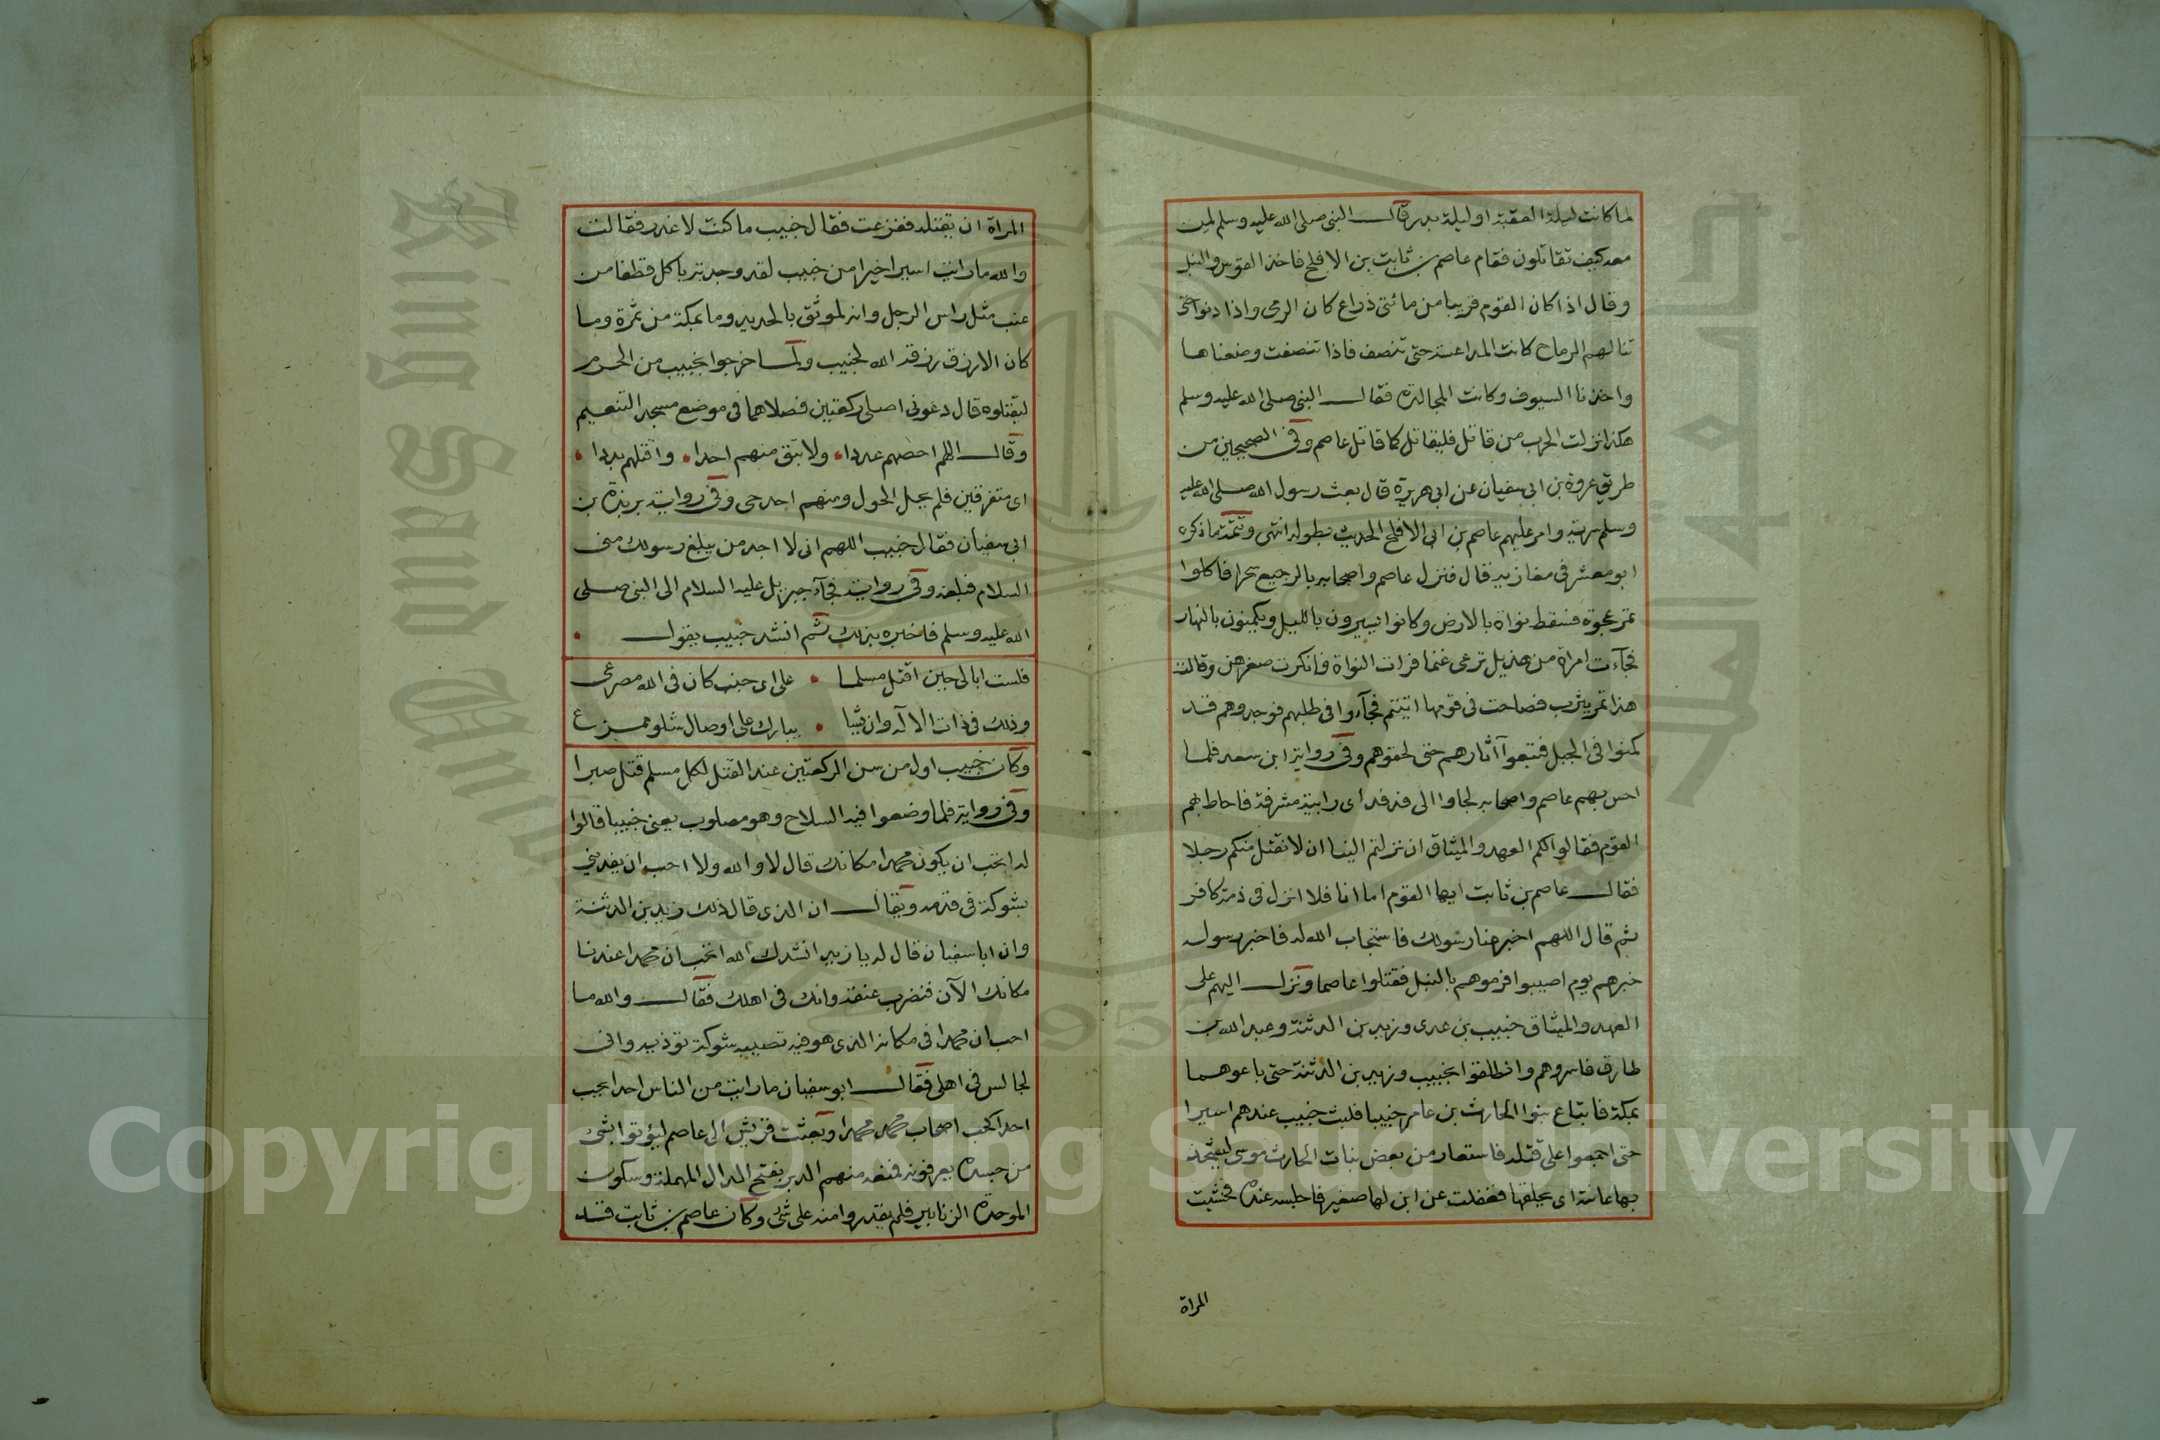 لما كانت ليلة العقبة او ليلة بدر قال النبي صلى الله عليه وسلم لمن
معه كيف تقاتلون فقام عاصم بن ثابت بن الافلح فاخذ القوس والنبل
وقال اذا كان القوم قريبا من مائتي ذراع كان الرمي واذا دنوا حتى
تنالهم الرماح كانت المداعسة حتى تنصف فاذا تنصفت وضعناها
واخذنا السيوف وكانت المجالدة فقال النبي صلى الله عليه وسلم
هكذا نزلت الحرب من قاتل فليقاتل كما قاتل عاصم وفي الصحيحين من
طريق عروة بن ابي سفيان عن ابي هريرة قال بعث رسول الله صلى الله عليه
وسلم سرية وامر عليهم عاصم بن ابي الافلح الحديث بطوله انتهى وتمته ما ذكره
ابو معشر في مغازيه قال فنزل عاصم واصحابه بالرجيع سحرا فاكلوا
تمر عجوة فسقط نواة بالارض وكانوا يسيرون بالليل ويكمنون بالنهار
فجآءت امراة من هذيل ترعى غنما فرات النواة وانكرت صغرهن وقالت
هذا تمر يثرب فصاحت في قومها اتيتم فجآءوا في طلبهم فوجدوهم قد
كمنوا في الجبل فتتبعوا آثارهم حتى لحقوهم وفي رواية ابن سعد فلما
احس بهم عاصم واصحابه لجاوا الى فدفد اى رابية مشرفة فاحاط بهم
القوم فقالوا لكم العهد والميثاق ان نزلتم الينا ان لا نقتل منكم رجلا
فقال عاصم بن ثابت ايها القوم اما انا فلا انزل في ذمة كافر
ثم قال اللهم اخبر عنا رسولك فاستجاب الله له فاخبر رسوله
خبرهم يوم اصيبوا فرموهم بالنبل فقتلوا عاصما ونزل اليهم على
العهد والميثاق خبيب بن عدى وزيد بن الدثنة وعبد الله بن
طارق فاسروهم وانطلقوا بخبيب وزيد بن الدثنة حتى باعوهما
بمكة فابتاع بنوا الحارث بن عامر خبيبا فلبث خبيب عندهم اسيرا
حتى اجمعوا على قتله فاستعار من بعض بنات الحارث موسى ليستحد
بها عانته اى يحلقها فغفلت عن ابن لها صغير فاجلسه عنده فخشيت
المراة
المراة ان يقتله ففزعت فقال خبيب ما كنت لاغدر فقالت
والله ما رايت اسيرا خيرا من خبيب لقد وجدته ياكل قطفا من
عنب مثل راس الرجل وانه لموثق بالحديد وما بمكة من ثمرة وما
كان الا رزق رزقه الله لخبيب ولما خرجوا بخبيب من الحرم
ليقتلوه قال دعوني اصلي ركعتين فصلاهما في موضع مسجد التنعيم
وقال اللهم احصهم عددا ولا تبق منهم احدا واقتلهم بددا
اى متفرقين فلم يحل الحول ومنهم احد حى وفي رواية بريدة بن
ابي سفيان فقال خبيب اللهم اني لا اجد من يبلغ رسولك مني
السلام فبلغه وفي رواية فجآء جبريل عليه السلام الى النبي صلى
الله عليه وسلم فاخبره بذلك ثم انشد خبيب يقول
فلست ابالى حين اقتل مسلما على اى جنب كان في الله مصرعى
وذلك في ذات الاله وان يشا يبارك على اوصال شلو ممزع
وكان خبيب اول من سن الركعتين عند القتل لكل مسلم قتل صبرا
وفي رواية فلما وضعوا فيه السلاح وهو مصلوب يعني خبيبا قالوا
له اتحب ان يكون محمدا مكانك قال لا والله ولا احب ان يفديني
بشوكة في قدمه ويقال ان الذى قال ذلك زيد بن الدثنة
وان ابا سفيان قال له يا زيد انشدك الله اتحب ان محمدا عندنا
مكانك الآن فنضرب عنقه وانك في اهلك فقال والله ما
احب ان محمدا في مكانه الذى هو فيه تصيبه شوكة توذيه واني
لجالس في اهلى فقال ابو سفيان ما رايت من الناس احدا يحب
احدا كحب اصحاب محمد محمدا وبعثت قريش الى عاصم ليؤتوا بشئ
من جسده يعرفونه فمنعه منهم الدبر بفتح الدال المهملة وسكون
الموحدة الزنابير فلم يقدروا منه على شئ وكان عاصم بن ثابت قد
Copyright © King Saud University
King Saud University
1957